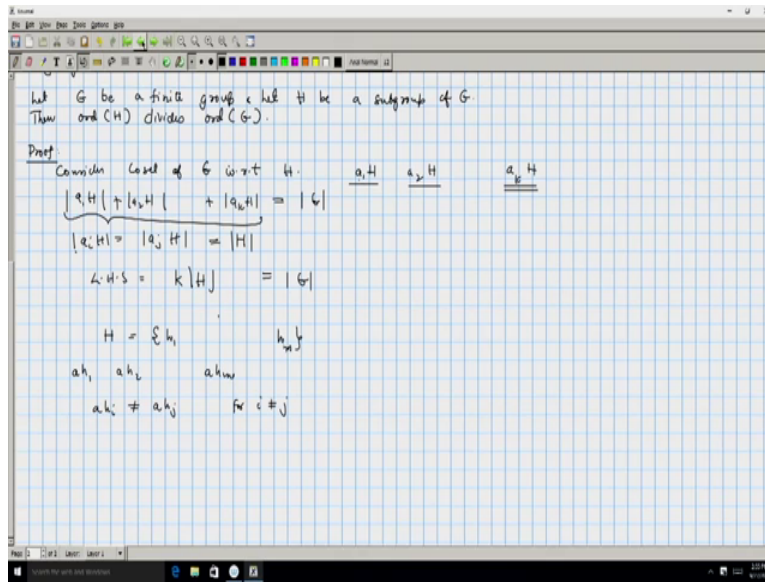 Xournal
File Edit View Page Tools Options Help
Arial Normal 12
Let G be a finite group & let H be a subgroup of G.
Then ord(H) divides ord(G).
Proof:
Consider Coset of G w.r.t H. a₁H a₂H aₖH
|a₁H| + |a₂H| + |aₖH| = |G|
|aᵢH| = |aⱼH| = |H|
L.H.S = k|H| = |G|
H = {h₁ hₘ}
ah₁ ah₂ ahₘ
ahᵢ ≠ ahⱼ for i ≠ j
Page 1 of 2 Layer: Layer 1
Search the web and Windows